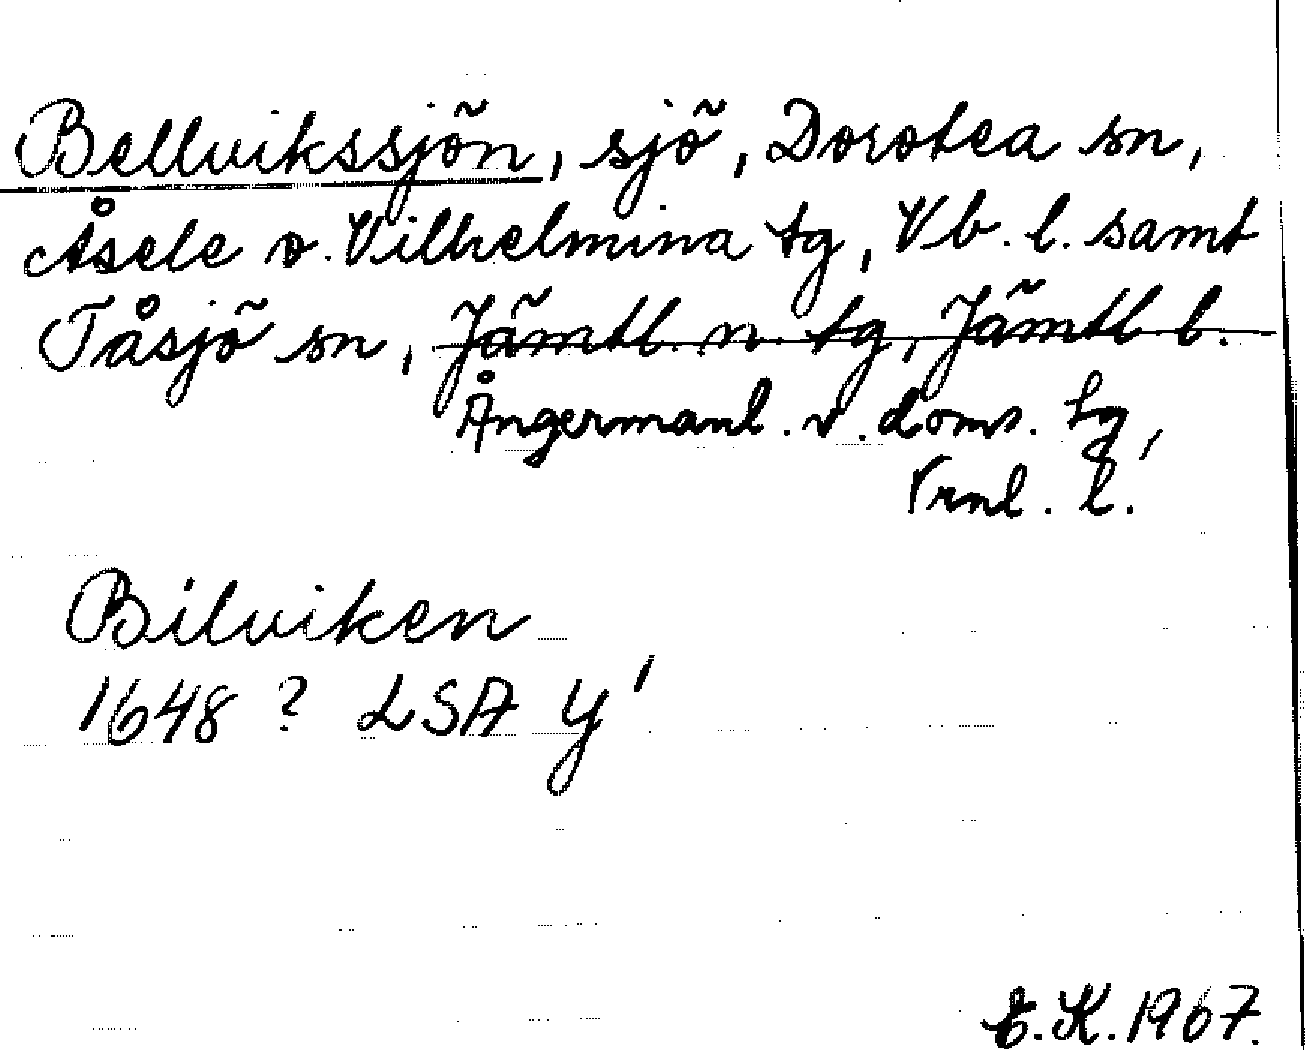 Bellvikssjön, sjö, Dorotea sn,
Åsele o. Vilhelmina tg, Vb. l. samt
Tåsjö sn, Jämtl. n. tg, Jämtl l.
Ångermanl. v. doms. tg,
Vrnl. l.
Bilviken
1648 ? LSA y'
E.K. 1967.